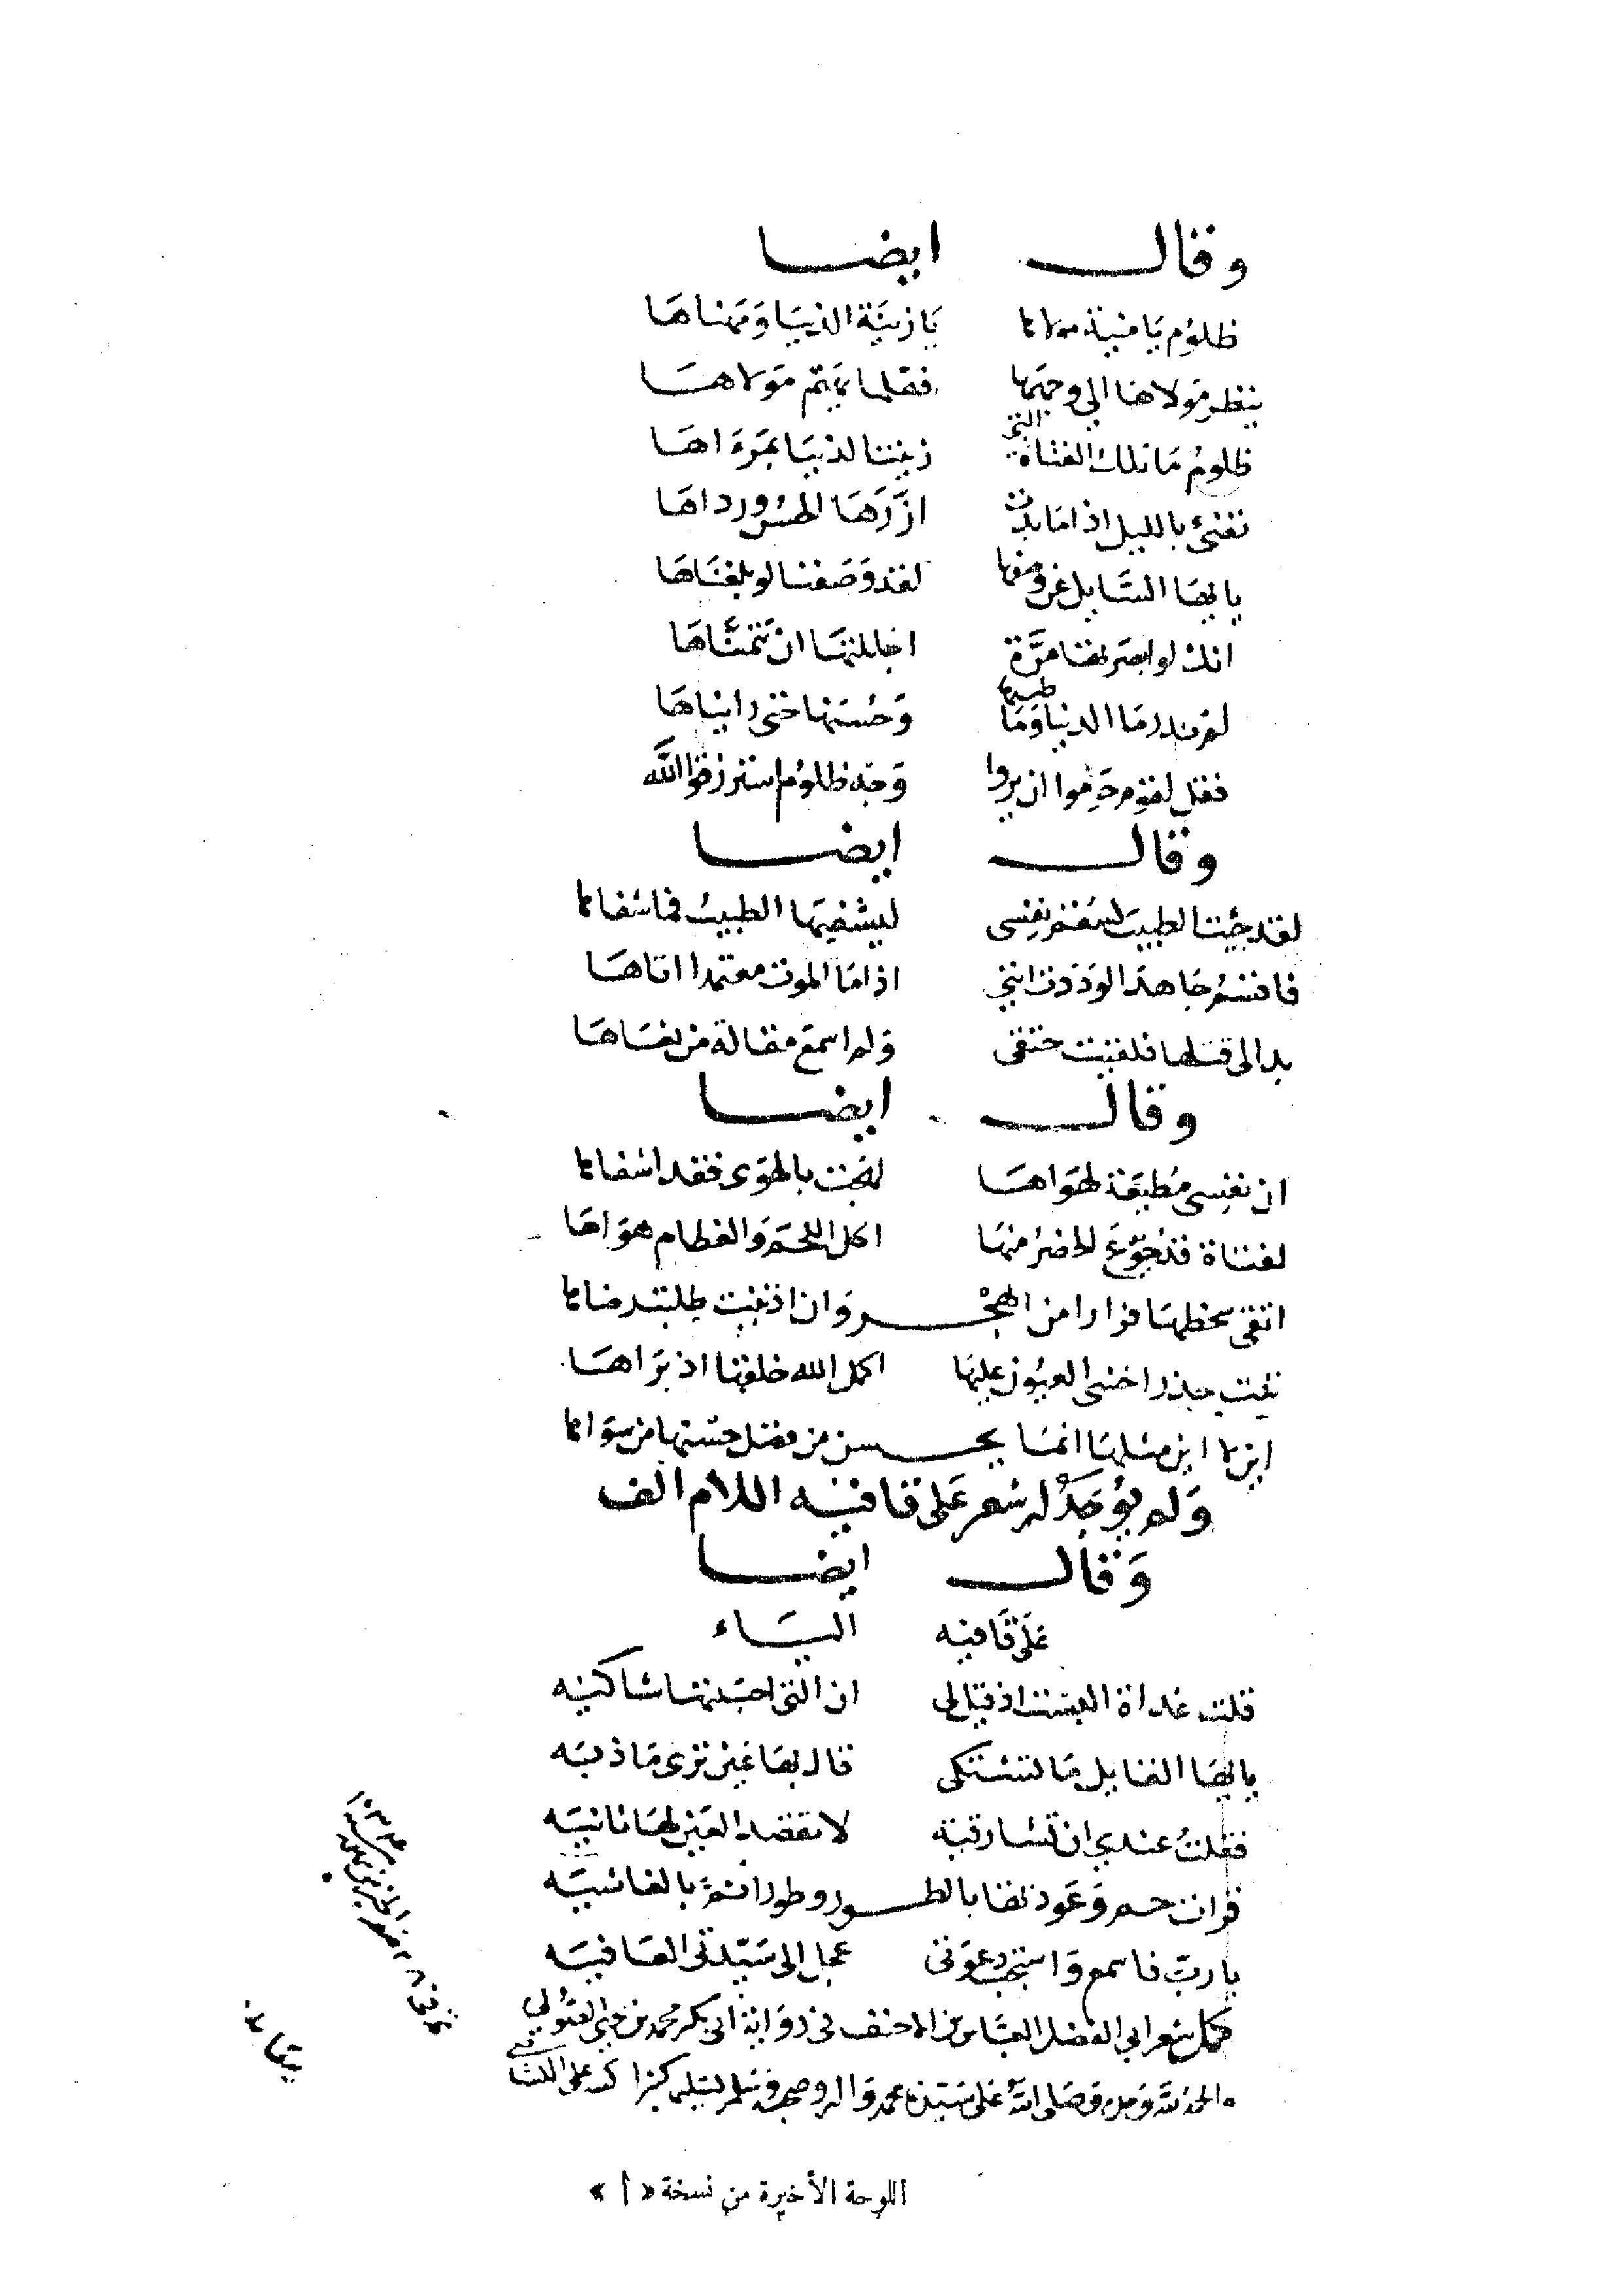 وقال ايضا
ظلوم يا منية مولاها يا زينة الدنيا ومهناها
ينظر مولاها الى وجهها فقلما يهتم مولاها
ظلوم ما تلك الفتاة التي زينت الدنيا بمرءاها
تغنى بالليل اذا ما بدت ازرها الحسن ورداها
يا ايها السايل عن وصفها لقد وصفنا لو بلغناها
انك لو ابصرتها مرة اجللتها ان تتمناها
لم ندر ما الدنيا وما طيبها وحسنها حتى رايناها
فقل لقوم حرموا ان يروا وجه ظلوم استرزقوا الله
وقال ايضا
لقد جيت الطبيب لسقم نفسي ليشفيها الطبيب فما شفاها
فاقسم جاهدا لوددت انني اذا ما الموت معتمدا اتاها
بدا لي قبلها فلقيت حتفي ولم اسمع مقالة من نعاها
وقال ايضا
ان نفسي مطيعة لهواها لهجت بالهوى فقد اشفاها
لفتاة قد جوع الخصر منها اكل اللحم والعظام هواها
اتقي سخطها فرارا من الهجر وان اذنبت طلبت رضاها
اكمل الله خلقها اذ براها
اين لا اين مثلها انما يحسن من فضل حسنها من سواها
ولم يوجد له شعر على قافيه اللام الف
وقال ايضا
على قافيه الياء
قلت غداة السبت اذ قيل لي ان التي احببتها شاكيه
يا ايها القايل ما تشتكي قال بها عين ترى ما ذيه
فقلت عندي ان تشا رقية لا تقصد العين لها ثانيه
قوات حم وعوذتها بالطور وطورا ثم بالغاشيه
يا رب فاسمع واستجب دعوتي عجل الى سيدتي العافيه
كمل شعر ابي الفضل العباس بن الاحنف في رواية ابي بكر محمد بن يحيى الصولي
الحمد لله وحده وصلى الله على سيدنا محمد واله وصحبه وسلم تسليما كثيرا
اللوحة الأخيرة من نسخة « أ »